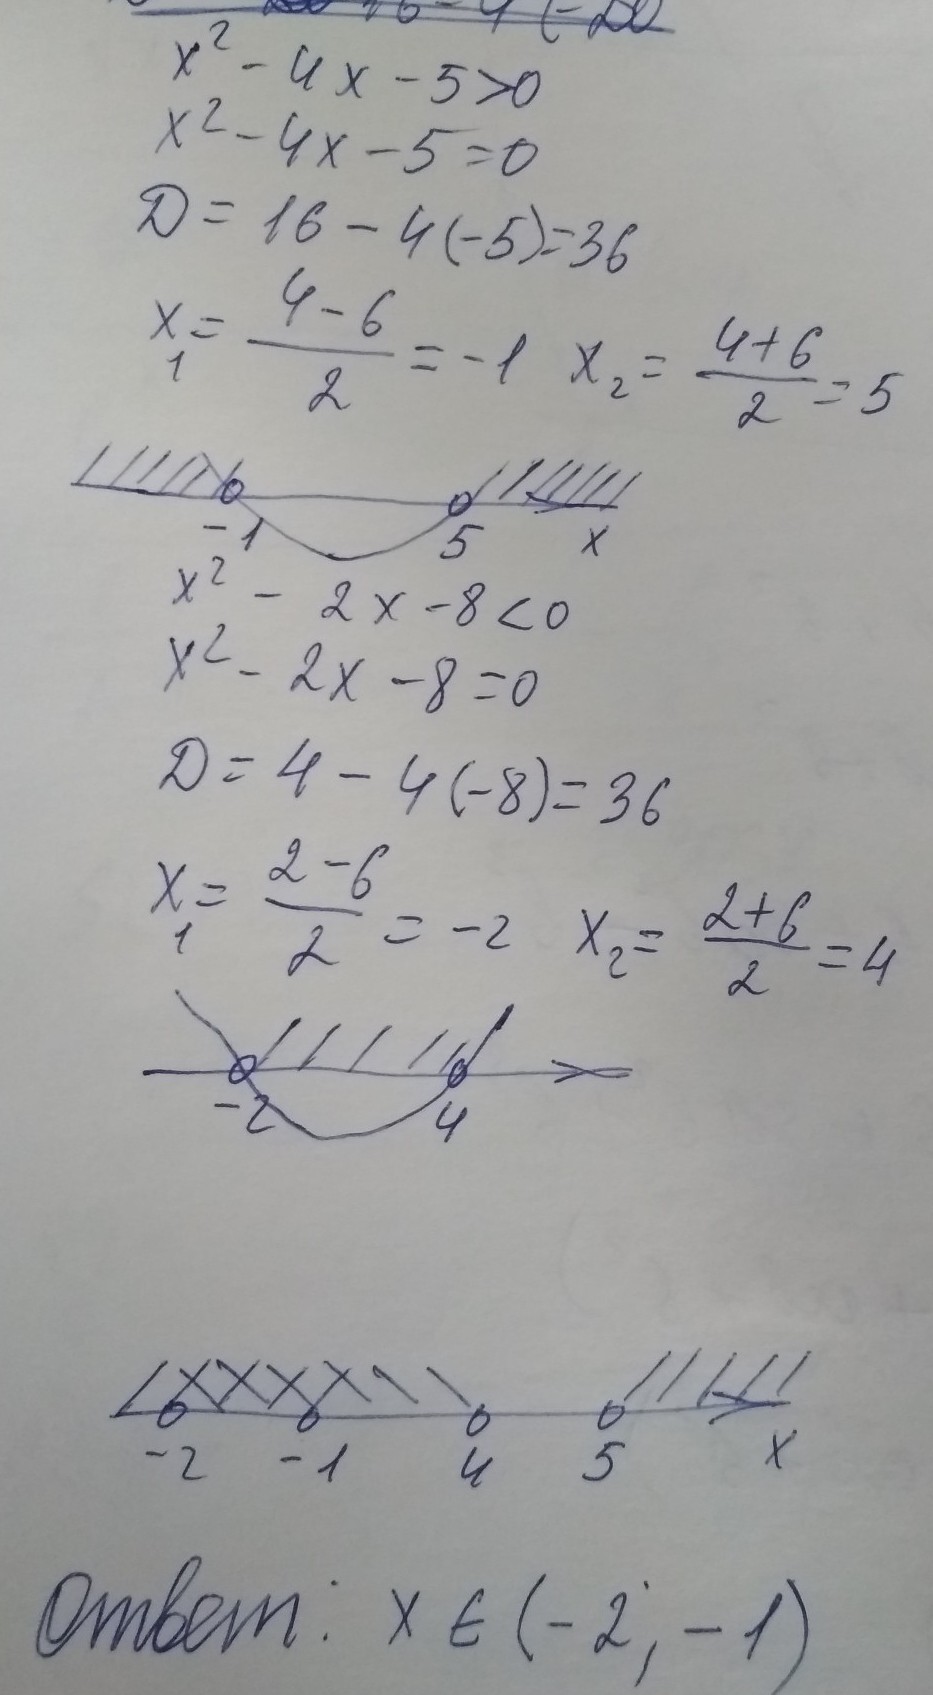 x² - 4x - 5 > 0
x² - 4x - 5 = 0
D = 16 - 4(-5) = 36
x₁ = (4-6)/2 = -1 x₂ = (4+6)/2 = 5
-1 5 x
x² - 2x - 8 < 0
x² - 2x - 8 = 0
D = 4 - 4(-8) = 36
x₁ = (2-6)/2 = -2 x₂ = (2+6)/2 = 4
-2 4
-2 -1 4 5 x
Ответ: x ∈ (-2; -1)